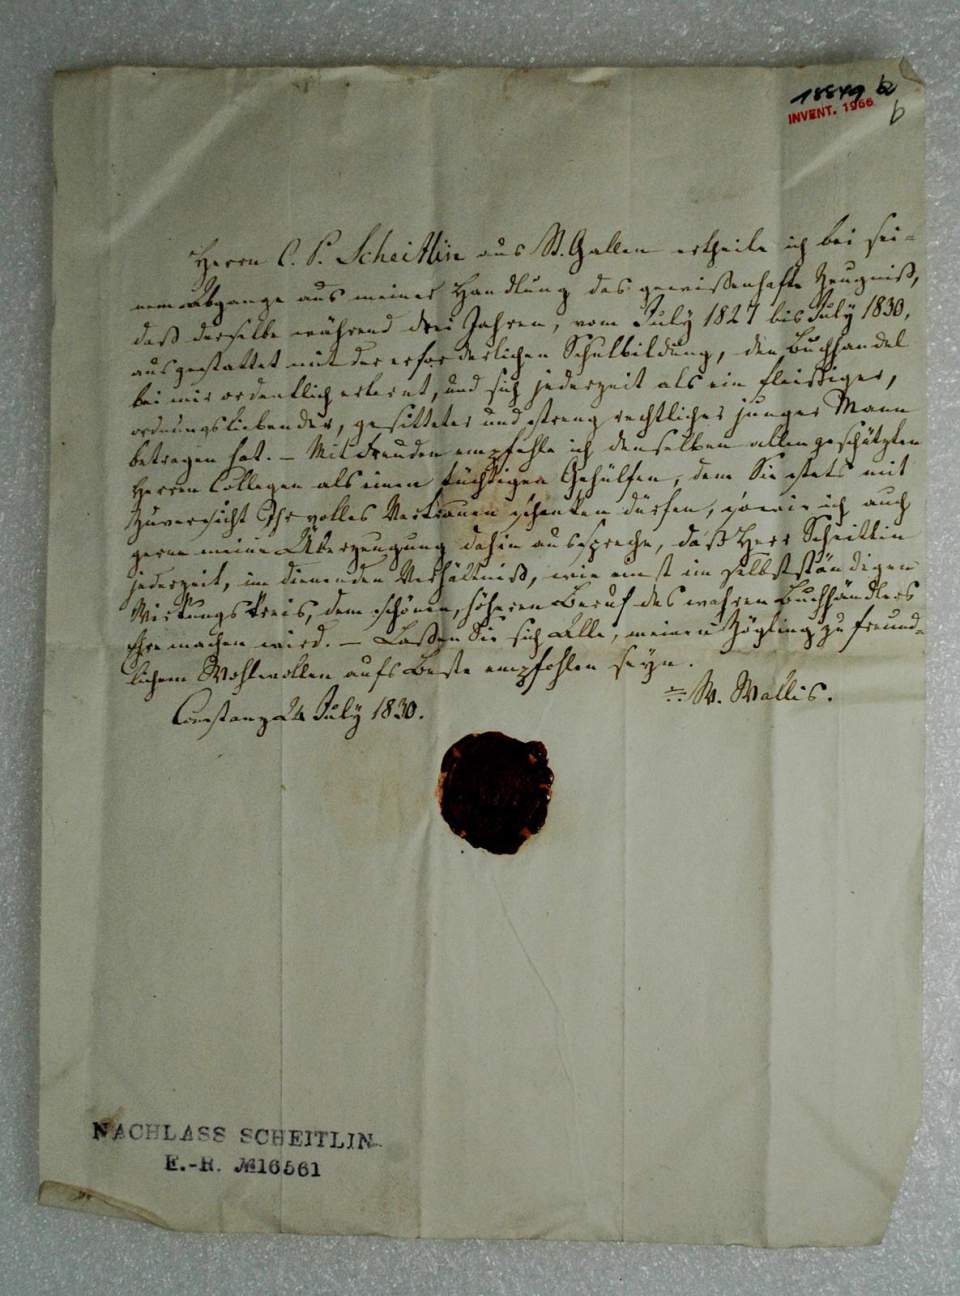 18849 b2
INVENT. 1966
b
Herrn C. P. Scheitlin aus St. Gallen ertheile ich bei sei=
nem Abgange aus meiner Handlung das gewissenhafte Zeugniß,
daß derselbe während drei Jahren, vom July 1827 bis July 1830,
ausgestattet mit der erforderlichen Schulbildung, den Buchhandel
bei mir ordentlich erlernt, und sich jederzeit als ein fleißiger,
ordnungsliebender, gesitteter und streng rechtlicher junger Mann
betragen hat. – Mit Freuden empfehle ich denselben allen geschätzten
Herren Collegen als einen tüchtigen Gehülfen, dem Sie stets mit
Zuversicht Ihr volles Vertrauen schenken dürfen, sowie ich auch
gerne meine Überzeugung dahin ausspreche, daß Herr Scheitlin
jederzeit, im dienenden Verhältniß, wie einst im selbstständigen
Wirkungskreis, dem schönen, höheren Beruf des wahren Buchhändlers
Ehre machen wird. – Laßen Sie sich Alle, meinen Zögling zu freund=
lichem Wohlwollen aufs Beste empfohlen seyn.
W. Wallis.
Constanz 24 July 1830.
NACHLASS SCHEITLIN
E.-R. №16561